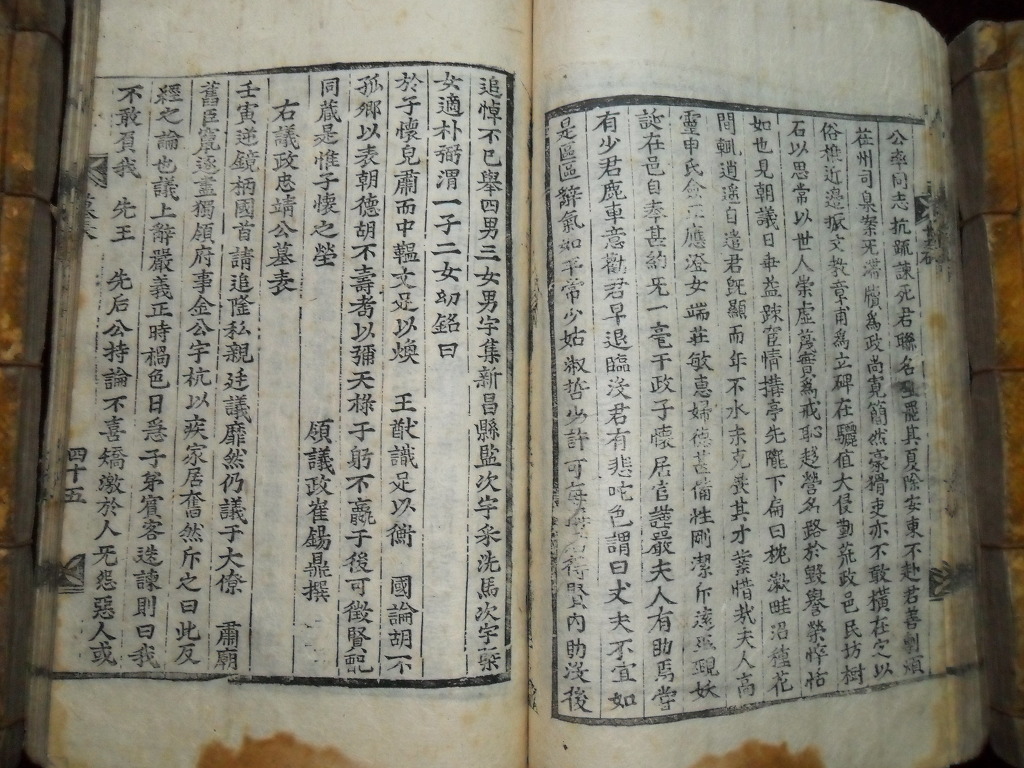 公率同志抗疏諫死君聯名坐罷其夏除安東不赴君善剸煩
莅州司臬案无滯牘爲政尚寬簡然豪猾吏亦不敢橫在定以
俗樵近邊振文敎章甫爲立碑在驪値大侵勤荒政邑民坊樹
石以思常以世人崇虛蔑實爲戒恥趍營名路於毀譽榮悴恬
如也見朝議日乖益疎宦情搆亭先隴下扁曰枕漱畦沼種花
間輒逍遙自遣君旣顯而年不永未克展其才業惜哉夫人高
靈申氏僉正應澄女端莊敏惠婦德甚備性剛潔斥遠巫覡妖
誕在邑自奉甚約无一毫干政子懷居官謹嚴夫人有助焉嘗
有少君鹿車意勸君早退臨沒君有悲咤色謂曰丈夫不宜如
是區區辭氣如平常少姑淑哲少許可每 得賢內助沒後
追悼不已擧四男三女男宇集新昌縣監次宇采洗馬次宇
女適朴弼渭一子二女幼銘曰
於子懷兒肅而中韞文足以煥 王猷識足以衡 國論胡不
孤鄕以表朝德胡不壽耉以彌天椂于躬不贏于後可徵賢配
同藏是惟子懷之塋
領議政崔錫鼎撰
右議政忠靖公墓表
壬寅逆鏡柄國首請追隆私親廷議靡然仍議于大僚 肅廟
舊臣竄逐盡獨領府事金公宇杭以疾家居奮然斥之曰此反
經之論也議上辭嚴義正時禍色日急子穿賓客迭諫則曰我
不敢負我 先王 先后公持論不喜矯激於人无怨惡人或
四十五